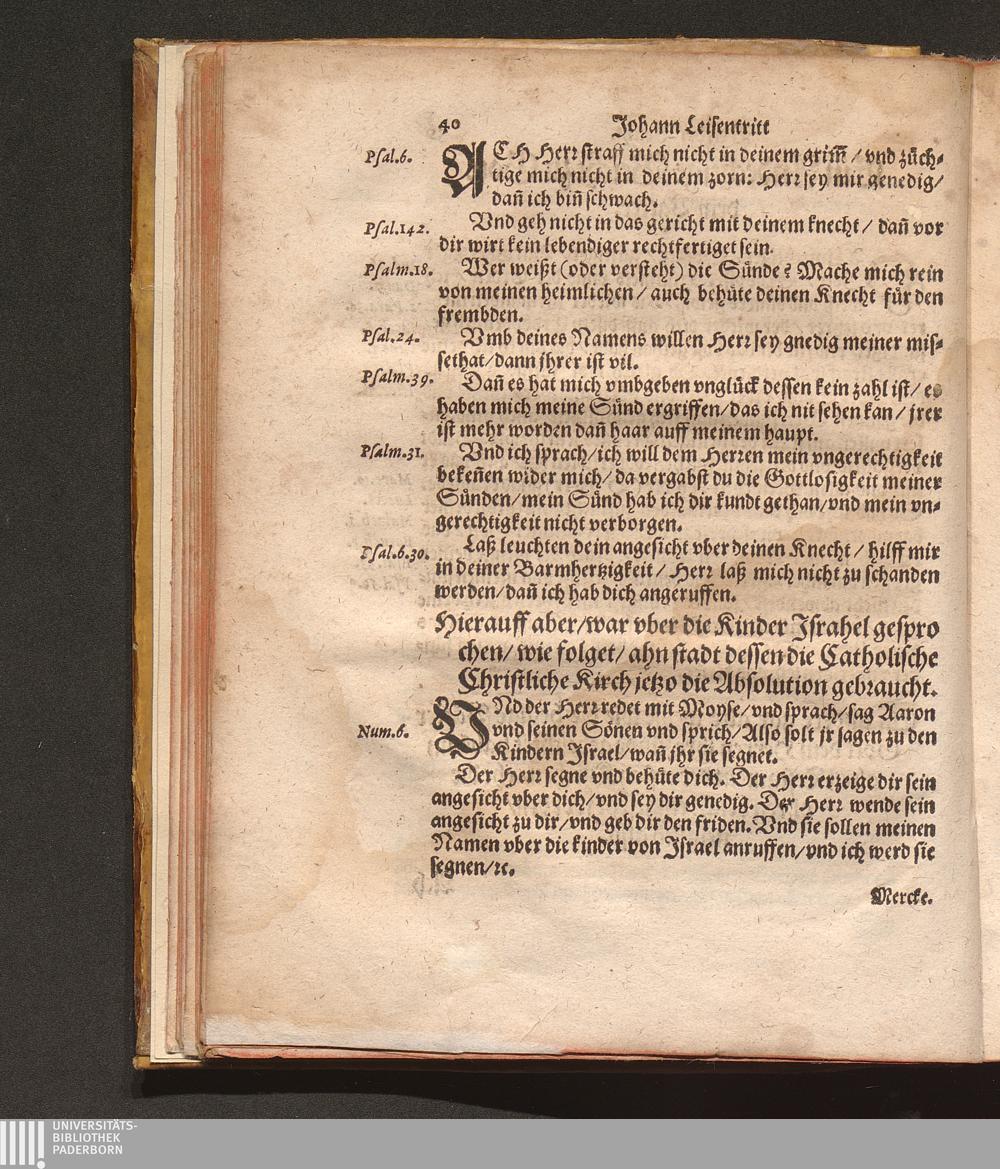 40 Johann Leisentritt
Psal.6. ACH Herr straff mich nicht in deinem grim̃ / vnd züch⸗
tige mich nicht in deinem zorn: Herr sey mir genedig/
dañ ich biñ schwach.
Psal.142. Vnd geh nicht in das gericht mit deinem knecht / dañ vor
dir wirt kein lebendiger rechtfertiget sein.
Psalm.18. Wer weißt (oder versteht) die Sünde? Mache mich rein
von meinen heimlichen / auch behüte deinen Knecht für den
frembden.
Psal.24. Vmb deines Namens willen Herr sey gnedig meiner mis⸗
sethat/dann jhrer ist vil.
Psalm.39. Dañ es hat mich vmbgeben vnglück dessen kein zahl ist/ es
haben mich meine Sünd ergriffen/das ich nit sehen kan / jrer
ist mehr worden dañ haar auff meinem haupt.
Psalm.31. Vnd ich sprach/ich will dem Herren mein vngerechtigkeit
bekeñen wider mich/ da vergabst du die Gottlosigkeit meiner
Sünden/mein Sünd hab ich dir kundt gethan/vnd mein vn⸗
gerechtigkeit nicht verborgen.
Psal.6.30. Laß leuchten dein angesicht vber deinen Knecht / hilff mir
in deiner Barmhertzigkeit/ Herr laß mich nicht zu schanden
werden/dañ ich hab dich angeruffen.
Hierauff aber/war vber die Kinder Jsrahel gespro
chen/ wie folget/ ahn stadt dessen die Catholische
Christliche Kirch jetzo die Absolution gebraucht.
Num.6. VNd der Herr redet mit Moyse/vnd sprach/sag Aaron
vnd seinen Sönen vnd sprich/Also solt jr sagen zu den
Kindern Jsrael/wañ jhr sie segnet.
Der Herr segne vnd behüte dich. Der Herr erzeige dir sein
angesicht vber dich/vnd sey dir genedig. Der Herr wende sein
angesicht zu dir/vnd geb dir den friden. Vnd sie sollen meinen
Namen vber die kinder von Jsrael anruffen/vnd ich werd sie
segnen/ꝛc.
Mercke.
UNIVERSITÄTS-
BIBLIOTHEK
PADERBORN